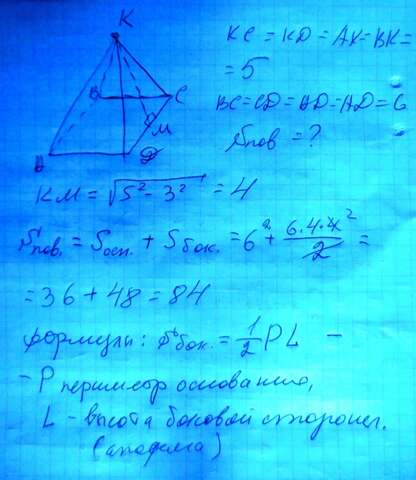 K
B
C
M
A
D
KC = KD = AK = BK =
= 5
BC = CD = BD = AD = 6
Sпов = ?
KM = √5² - 3² = 4
Sпов. = Sосн. + Sбок. = 6² + 6·4·4²/2 =
= 36 + 48 = 84
формулы: Sбок. = 1/2 PL -
- P периметр основания,
L - высота боковой стороны.
(апофема)